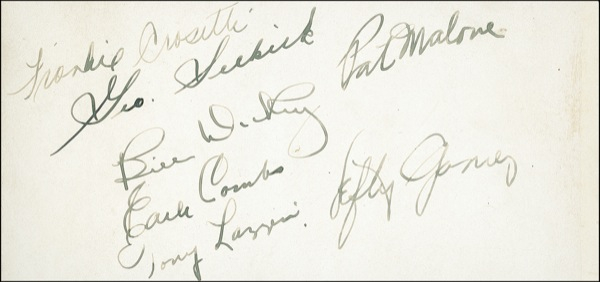 Frankie Crosetti
Geo. Selkirk
Pat Malone
Bill Dickey
Earle Combs
Tony Lazzeri
Lefty Gomez